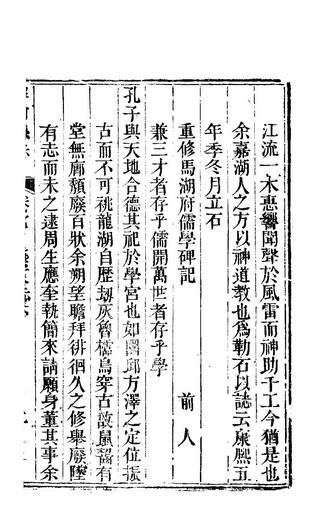 江流一木惠響聞聲於風雷而神助千工今猶是也
余嘉湖人之方以神道教也為勒石以誌云康熙五
年季冬月立石
重修馬湖府儒學碑記　前人
兼三才者存乎儒開萬世者存乎學
孔子與天地合德其祀於學宮也如圜邱方澤之定位振
古而不可祧龍湖自歷劫灰魯櫺鳥穿古故鼠齧有
堂無廊頹廢百狀余朔望瞻拜徘徊久之修舉廢墜
有志而未之逮周生應奎執簡來請願身董其事余